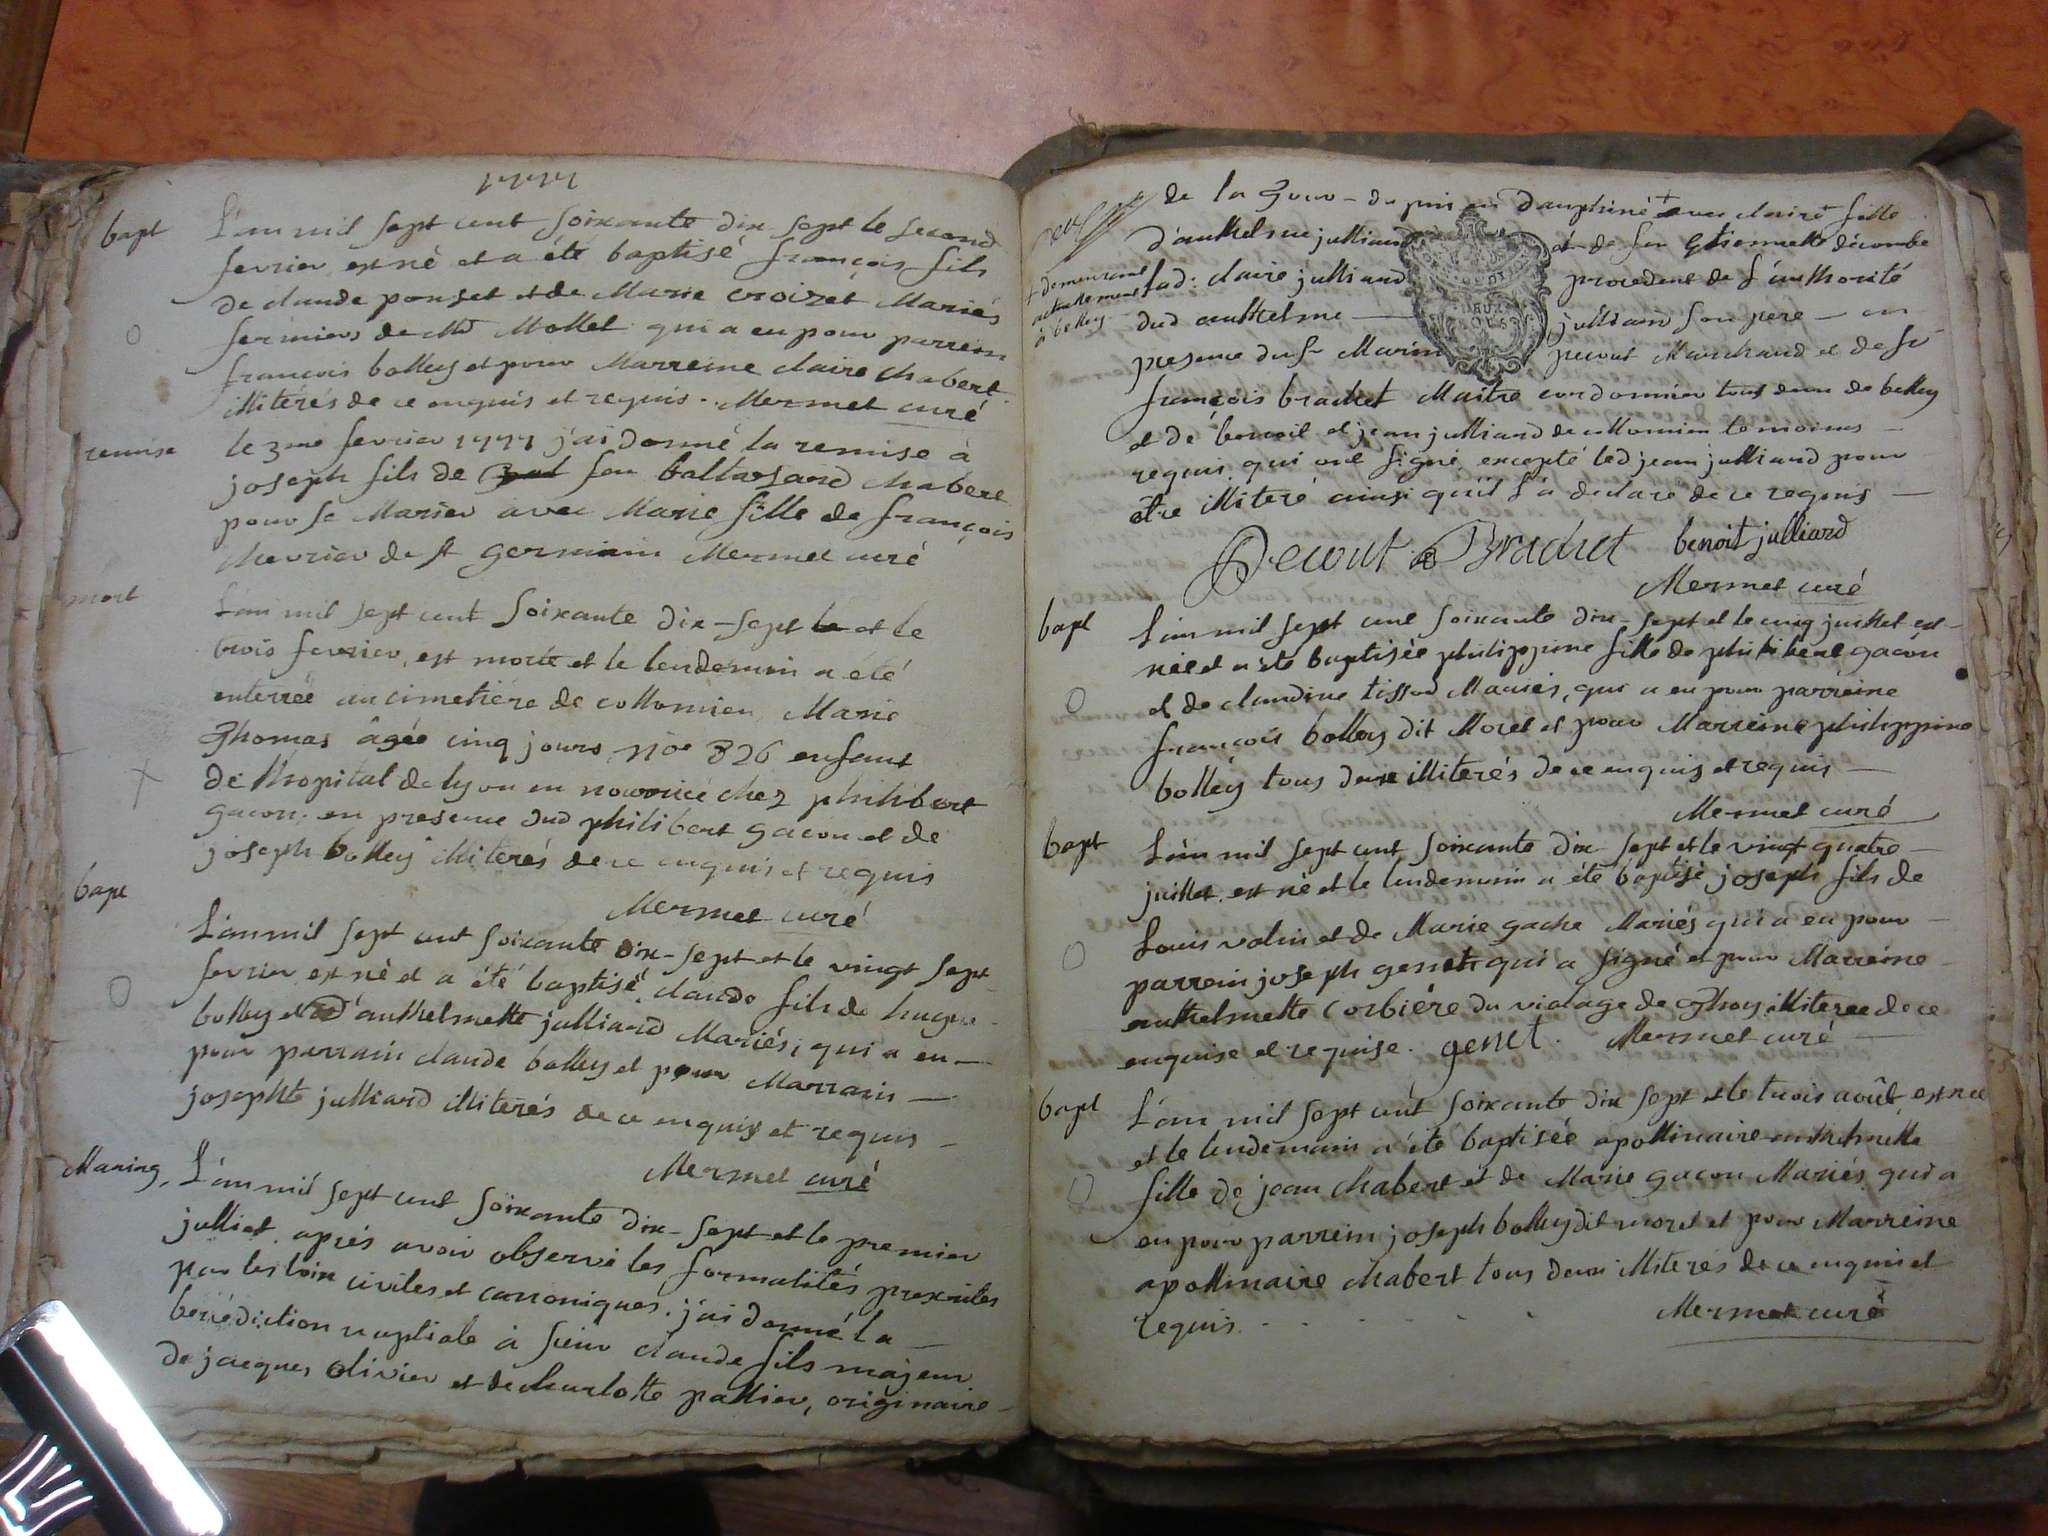 1777
bapt
L'an mil sept cent soixante dix sept le second
fevrier est né et a été baptisé françois fils
de claude ponset et de Marie croizet Mariés
fermiers de Mr Mollet qui a eu pour parrein
françois bolley et pour Marreine claire chabert
illiterés de ce enquis et requis. Mermet curé
remise
le 3me fevrier 1777 j'ai donné la remise à
joseph fils de feu baltasard chabert
pour se Marier avec Marie fille de françois
chevrier de st germain Mermet curé
mort
L'an mil sept cent soixante dix-sept le et le
trois fevrier, est morte et le lendemain a été
enterrée au cimetière de collomieu Marie
Thomas âgée cinq jours no 326 enfant
de l'hopital de lyon en nourice chez philibert
gacon. en presence dud philibert gacon et de
joseph bolley illiterés de ce enquis et requis
Mermet curé
bapt
L'an mil sept cent soixante dix-sept et le vingt sept
fevrier est né et a été baptisé claude fils de hugue
bolley et d'anthelmette julliard Mariés, qui a eu
pour parrain claude bolley et pour Marrain
josephte julliard illiterés de ce enquis et requis
Mermet curé
Mariag
L'an mil sept cent soixante dix-sept et le premier
julliet après avoir observé les formalités prescrites
par les loix civiles et canoniques. j'ai donné la
benédiction nuptiale à sieur claude fils majeur
de jacques olivier et de charlotte pallier, originaire
de la du pin en dauphiné + avec claire fille
+ demeurant
actuellement
à belley
d'anthelme julliard et de feu Etiennette décombe
lad: claire julliard procedent de l'authorité
dud anthelme julliard son pere en
presence du sr Marin pecout Marchand et de sr
françois brachet Maitre cordonnier tous deux de belley
et de benoit et jean julliard de collomieu temoins
requis qui ont signé excepté led jean julliard pour
être illiteré ainsi qu'il l'a declaré de ce requis
Pecout Brachet benoit julliard
Mermet curé
bapt
L'an mil sept cent soixante dix-sept et le cinq juillet est
née et a été baptisée philippine fille de philibert gacon
et de claudine tissot Mariés, qui a eu pour parreine
françois bolley dit Moret et pour Marreine philippine
bolley tous deux illiterés de ce enquis et requis
Mermet curé
bapt
L'an mil sept cent soixante dix sept et le vingt quatre
juillet est né et le lendemain a été baptisé joseph fils de
Louis valin et de Marie gache Mariés qui a eu pour
parrein joseph genet qui a signé et pour Marreine
anthelmette Corbiére du vialage de Thoy illiterée de ce
enquise et requise. genet. Mermet curé
bapt
L'an mil sept cent soixante dix sept et le trois août, est née
et le lendemain a été baptisée apollinaire anthelmette
fille de jean chabert et de Marie gacon Mariés qui a
eu pour parrein joseph bolley dit moret et pour Marreine
apollinaire chabert tous deux illiterés de ce enquis et
requis. Mermet curé